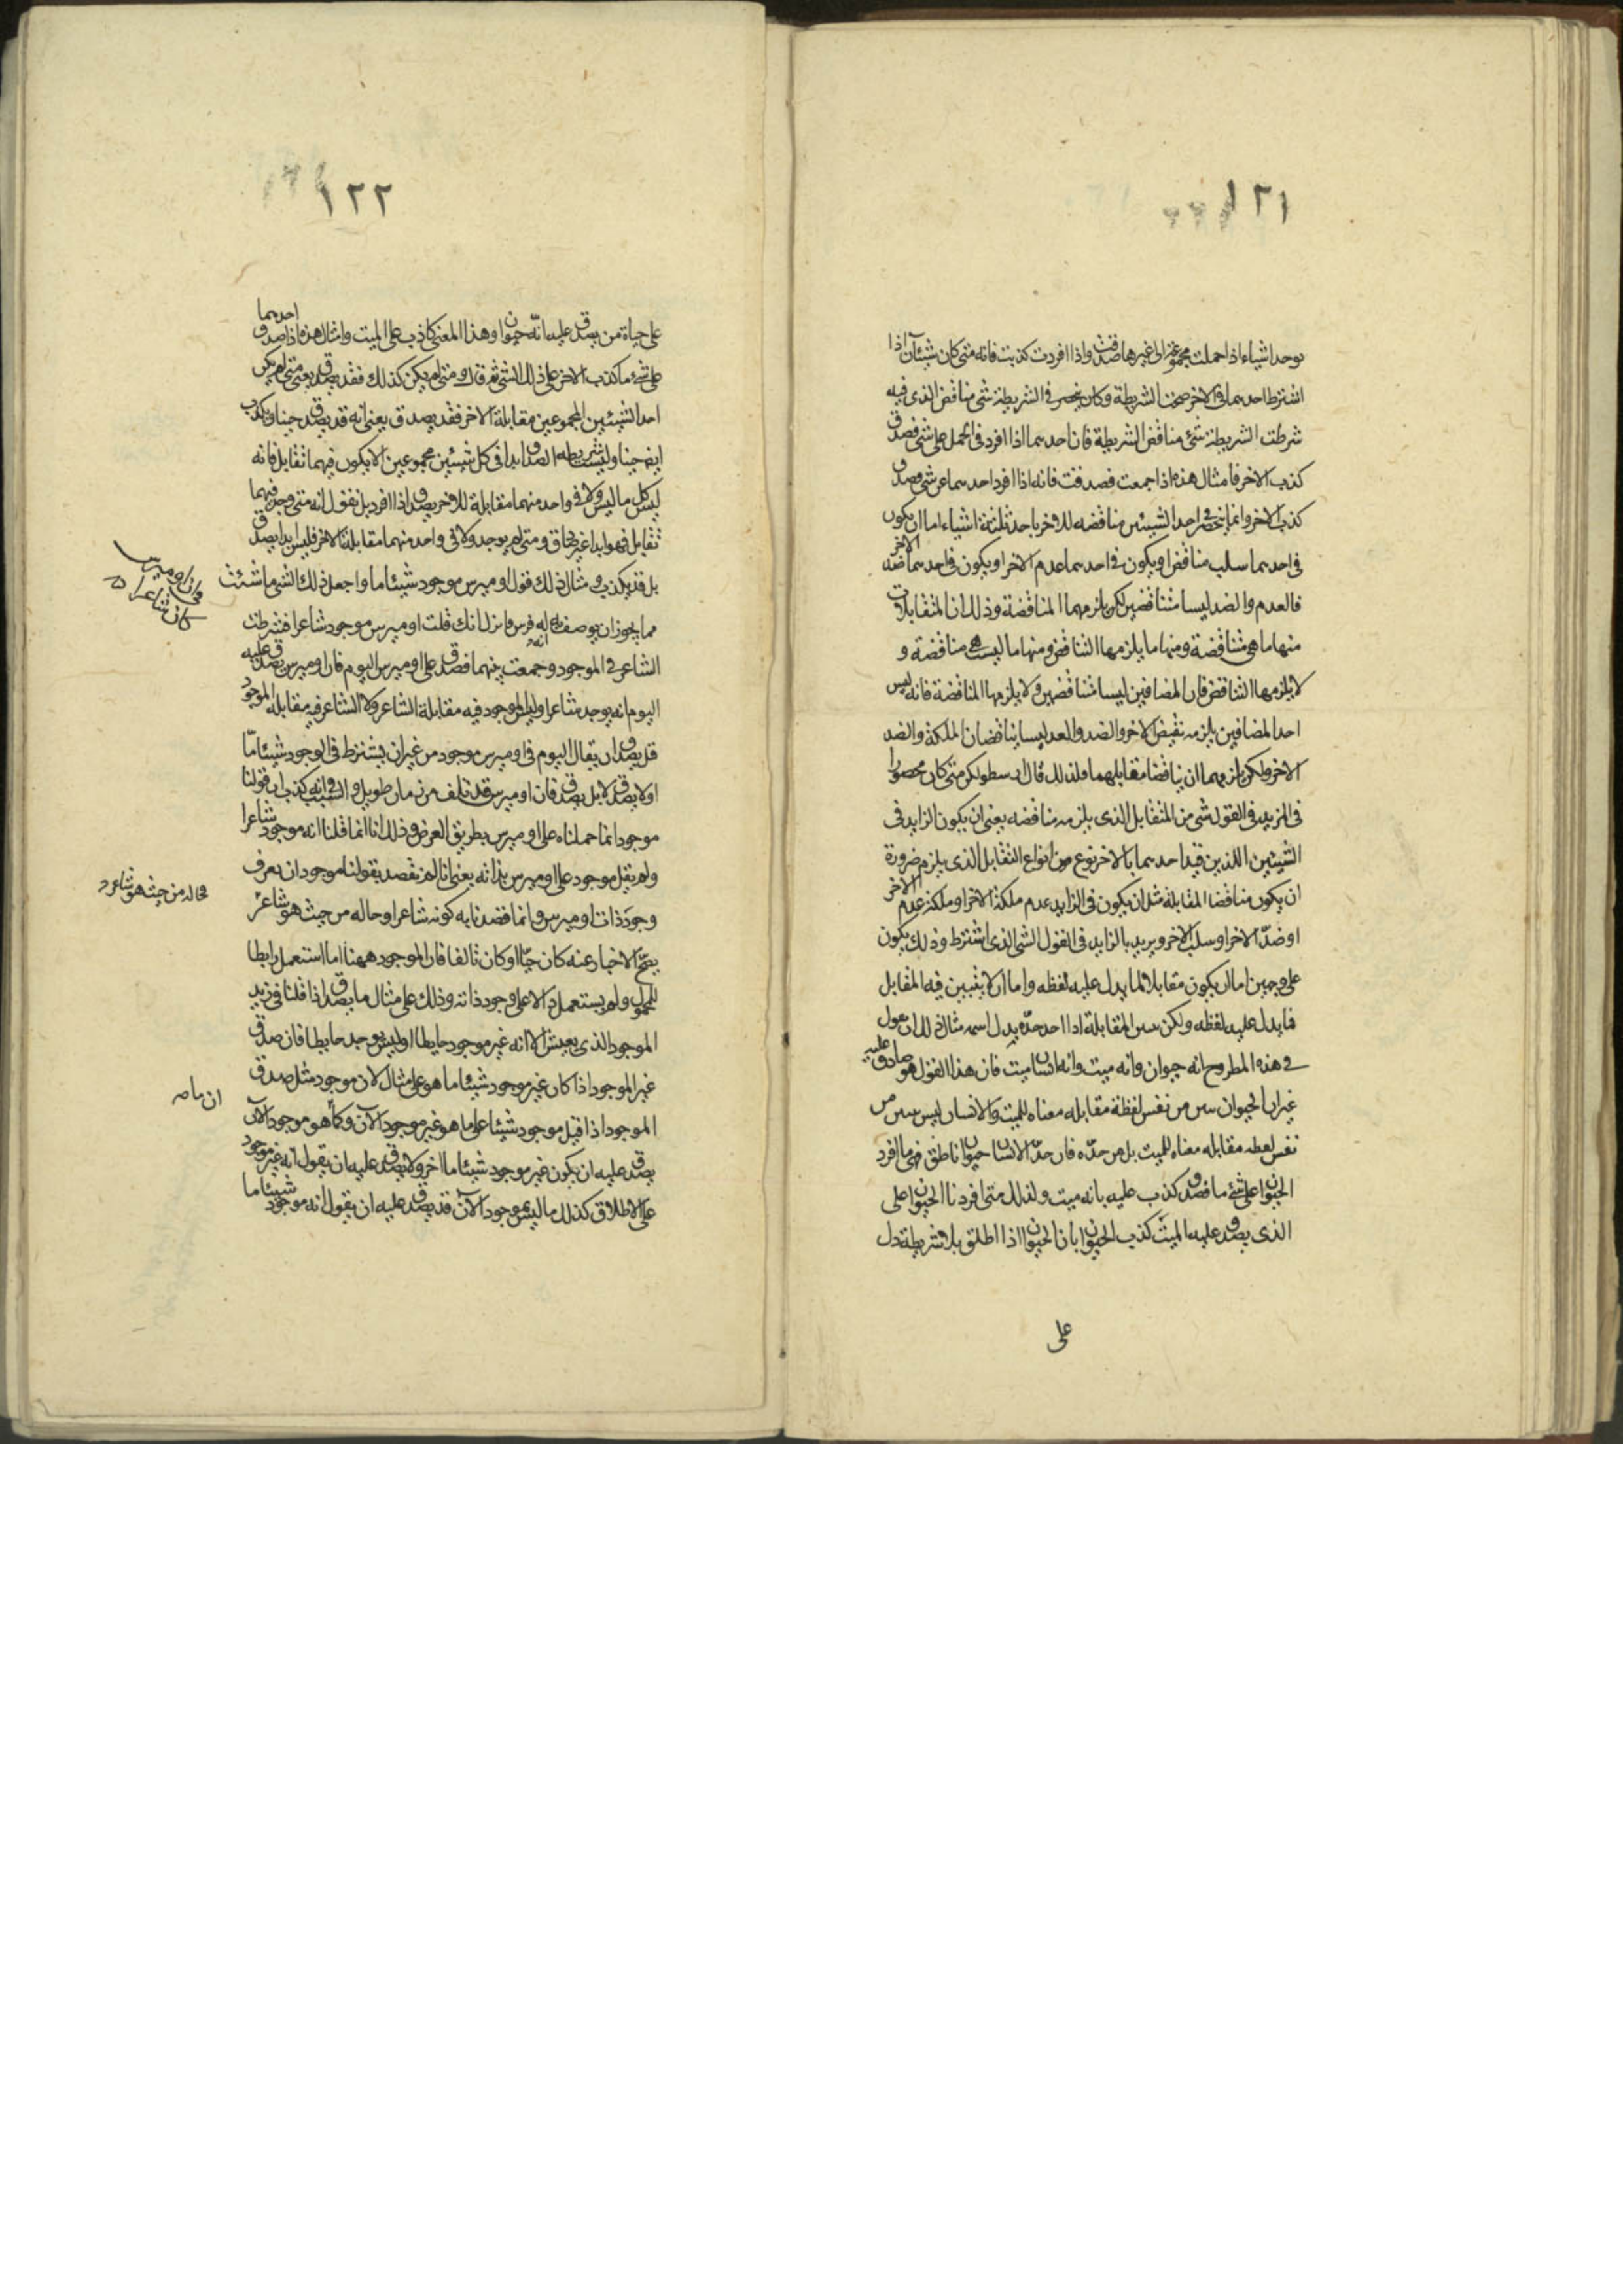 ١٢١
يوجد اشياء اذا حملت مجموعة الى غيرها صدقت واذا افردت كذبت فانه متى كان شيئان اذا
اشترط احدهما في الاخر صحت الشريطة وكان ينحصر في الشريطة شئ مناقض الذى فيه
شرطت الشريطة شئ مناقض الشريطة فان احدهما اذا افرد في الحمل على شئ فصدق
كذب الاخر فامثال هذه اذا جمعت فصدقت فانه اذا افرد احدهما عن شئ وصدق
كذب الاخر وانما ينحصر في احد الشيئين مناقضه للاخر باحد ثلثة اشياء اما ان يكون
في احدهما سلب مناقض او يكون في احدهما عدم الاخر او يكون في احدهما ضد الاخر
فالعدم والضد ليسا متناقضين لكن يلزمهما المناقضة وذلك ان المتقابلات
منها ما هى متناقضة ومنها ما يلزمها التناقض ومنها ما ليست هى مناقضة و
لا يلزمها التناقض فان المضافين ليسا متناقضين ولا يلزمها المناقضة فانه ليس
احد المضافين يلزمه نقيض الاخر والضد والعدم ليسا يناقضان الملكة والضد
الاخر ولكن يلزمهما ان يناقضا مقابلهما ولذلك قال ارسطو لكن متى كان محصورا
في المزيد في القول شئ من المتقابل الذى يلزمه مناقضه يعنى ان يكون الزايد في
الشيئين اللذين قيد احدهما بالاخر نوع من انواع التقابل الذى يلزم ضرورة
ان يكون مناقضا المقابلة مثل ان يكون في الزايد عدم ملكة الاخر او ملكة عدم الاخر
او ضدّ الاخر او سلب الاخر ويريد بالزايد في القول الشئ الذى اشترط وذلك يكون
على وجهين اما ان يكون مقابلا لما يدل عليه لفظه واما ان لا يتبين فيه المقابل
فما يدل عليه لفظه ولكن المقابلة اذا احد حدّه بدل اسمه مثال ذلك ان نقول
في هذه المطروح انه حيوان وانه ميت وانه انسان ميت فان هذا القول هو صادق عليه
غير ان الحيوان من نفس لفظة مقابله معناه للميت والانسان ليس من
نفس لفظه مقابله معناه للميت بل من حدّه فان حدّ الانسان حيوان ناطق فمهما افرد
الحيوان على شئ ما فصدق كذب عليه بانه ميت ولذلك متى افردنا الحيوان على
الذى يصدق عليه الميت كذب الحيوان بان الحيوان اذا اطلق بلا شريطة دل
على
١٢٢
على حياة من يصدق عليه انّه حيوان وهذا المعنى كاذب على الميت وامثال هذه اذا صدق احدهما
على شئ ما كذب الاخر على ذلك الشئ ثم قال ومتى لم يكن كذلك فقد يصدق يعنى متى لم يكن
احد الشيئين المجموعين مقابلة الاخر فقد يصدق يعنى انه قد يصدق حينا ويكذب
ايضا حينا وليست شريطه الصدق ابدا في كل شيئين مجموعين الا يكون فيهما تقابل فانه
ليس كل ما ليس ولا في واحد منهما مقابلة للاخر يصدق اذا افرد بل نقول انه متى وجد فيهما
تقابل فهو ابدا غير صادق ومتى لم يوجد ولا في واحد منهما مقابلة الاخر فليس ابدا يصدق
بل قد يكذب ومثال ذلك قول اوميرس موجود شيئا ما واجعل ذلك الشئ ما شئت
مما يجوز ان يوصف به انه فرس فانزل انك قلت اوميرس موجود شاعرا فشرطت
الشاعر في الموجود وجمعت بينهما فصدق على اوميرس اليوم فان اوميرس يصدق عليه
اليوم انه يوجد شاعرا وليس في الموجود فيه مقابلة الشاعر ولا الشاعر فيه مقابله الموجود
قد يصدق ان يقال اليوم في اوميرس موجود من غير ان يشترط في الوجود شيئا مّا
او لا يصدق لا بل يصدق فان اوميرس قد تلف من زمان طويل والسبب في انه كذب ان قولنا
موجود انما حملناه على اوميرس بطريق العرض وذلك انا انما قلنا انه موجود شاعرا
ولم يقل موجود على اوميرس بذاته يعنى انا لم نقصد بقولنا موجود ان نعرف
وجود ذات اوميرس وانما قصدنا به كونه شاعرا وحاله من حيث هو شاعر
يصحّ الاخبار عنه كان حيّا او كان تالفا فان الموجود ههنا انما استعمل رابطا
للمحمول ولم يستعمل دالا على وجود ذاته وذلك على مثال ما يصدق اذا قلنا في زيد
الموجود الذى يعيش الا انه غير موجود حايطا او ليس يوجد حايطا فان صدق
غير الموجود اذا كان غير موجود شيئا ما هو على مثال لان موجود مثل صدق
الموجود اذا قيل موجود شيئا على ما هو غير موجود الان وكما هو موجود الان
يصدق عليه ان يكون غير موجود شيئا ما اخر ولا يصدق عليه ان يقول انه غير موجود
على الاطلاق كذلك ما ليس بموجود الان قد يصدق عليه ان يقول انه موجود شيئا ما
فان اوميرس
كان شاعرا
حاله من حيث هو شاعر